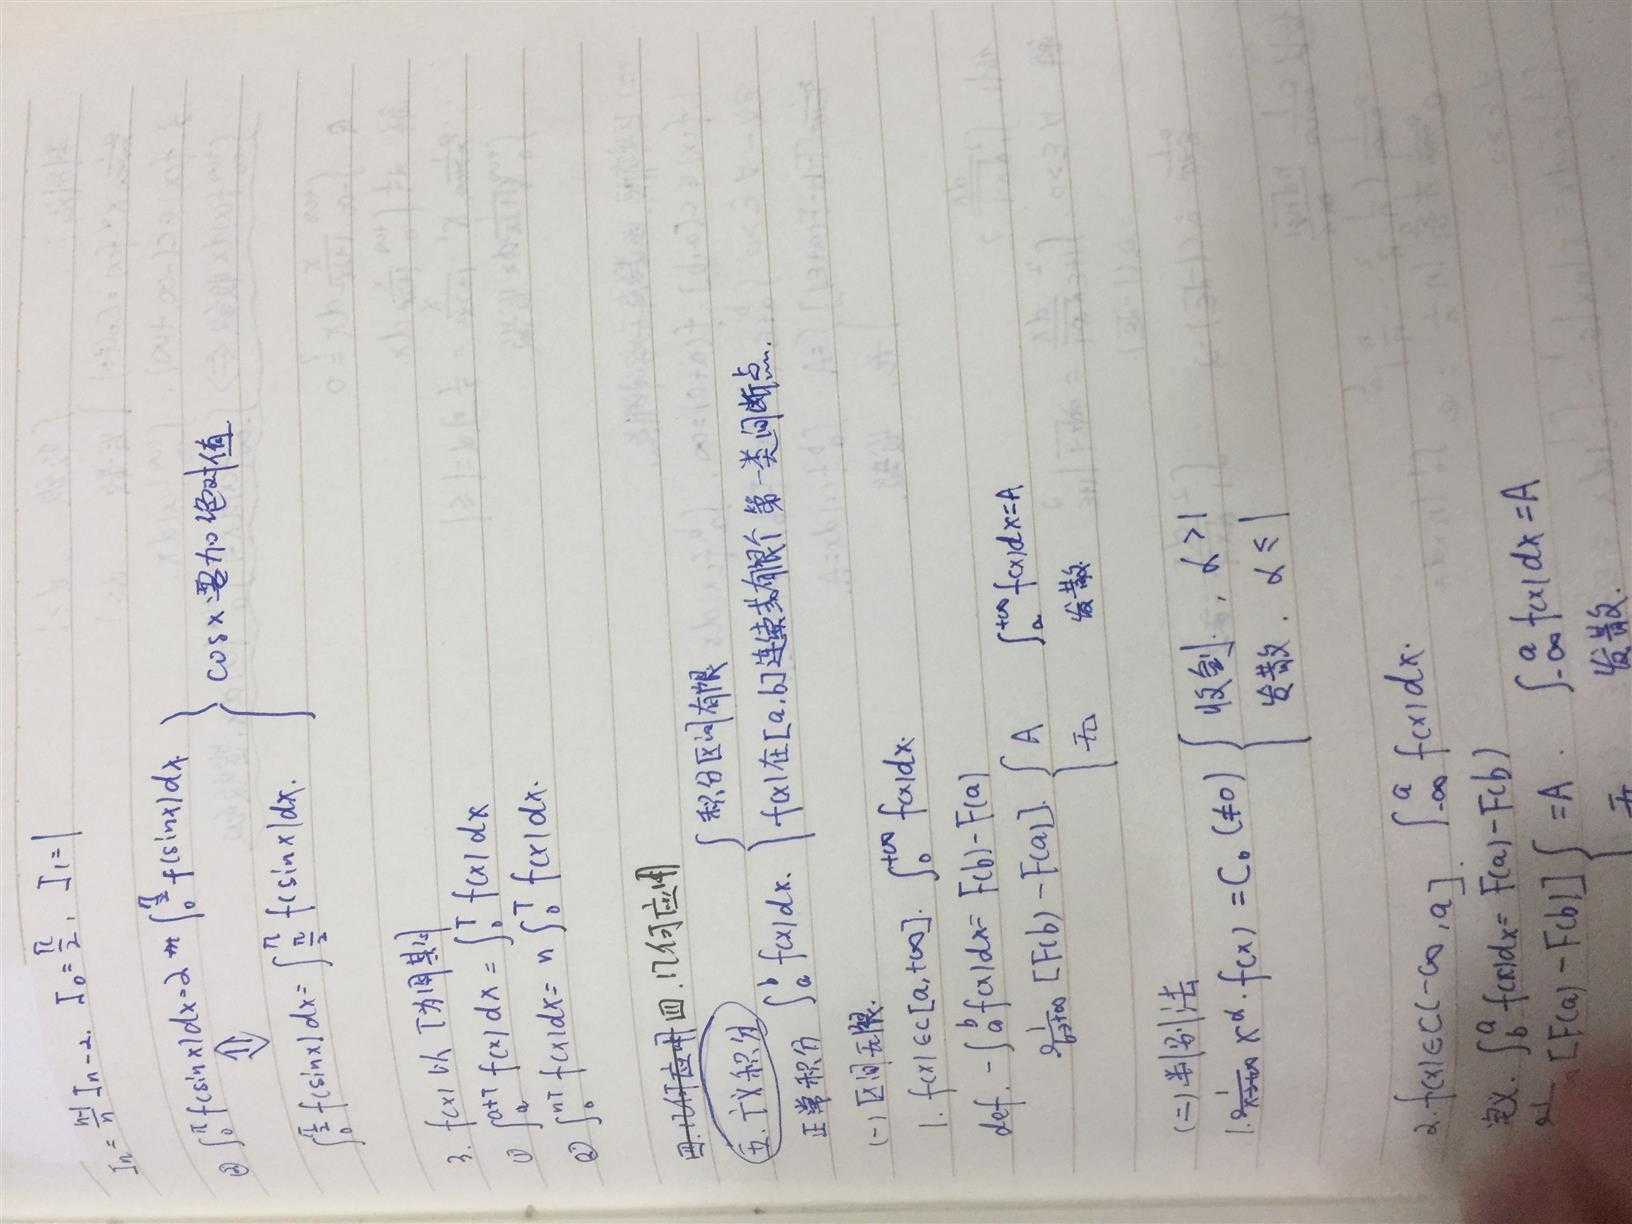 Iₙ = \frac{n-1}{n} Iₙ₋₂. I₀ = \frac{π}{2}, I₁ = 1
② ∫₀^π f(sinx)dx = 2 ∫₀^{\frac{π}{2}} f(sinx)dx } cosx要加绝对值
⇕
∫₀^{\frac{π}{2}} f(sinx)dx = ∫_{\frac{π}{2}}^π f(sinx)dx.
3. f(x)以T为周期
① ∫ₐ^{a+T} f(x)dx = ∫₀^T f(x)dx
② ∫₀^{nT} f(x)dx = n∫₀^T f(x)dx.
四.几何应用 四.几何应用
五.广义积分 { 积分区间有限
正常积分 ∫ₐ^b f(x)dx. { f(x)在[a,b]连续或有限个第一类间断点.
(一)区间无限.
1. f(x)∈C[a,+∞). ∫₀^{+∞} f(x)dx.
def. - ∫ₐ^b f(x)dx = F(b)-F(a)
lim_{b→+∞} [F(b)-F(a)] { A ∫ₐ^{+∞} f(x)dx=A
不 发散
(二)判别法
1. lim_{x→+∞} x^α·f(x) = C₀(≠0) { 收敛, α>1
发散. α≤1
2. f(x)∈C(-∞,a]. ∫_{-∞}^a f(x)dx.
定义. ∫_b^a f(x)dx = F(a)-F(b)
[F(a)-F(b)] { =A. ∫_{-∞}^a f(x)dx=A
不 发散.